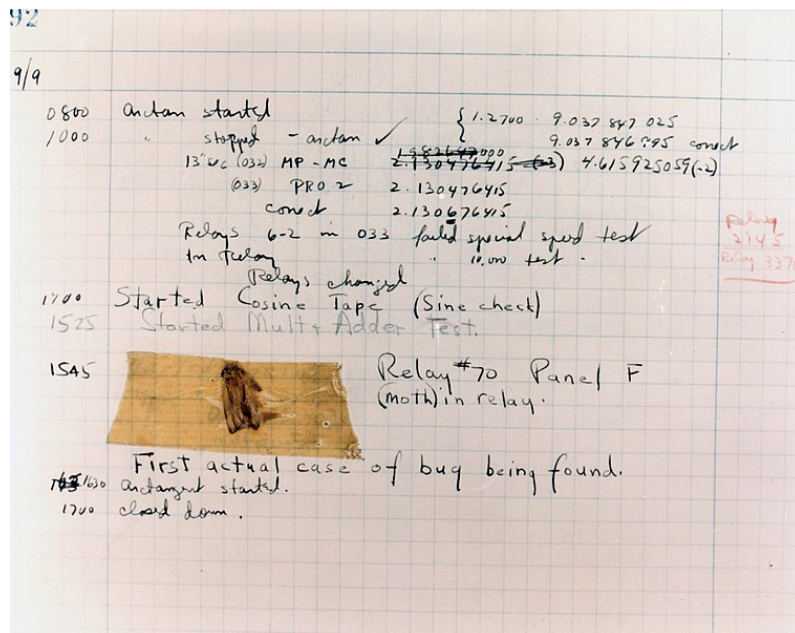 92
9/9
0800 arctan started { 1.2700 9.037 847 025
1000 " stopped - arctan ✓ { 9.037 846 995 correct
13"uc (032) MP - MC 2.130476415 (-3) 4.615925059(-2)
(033) PRO 2 2.130476415
correct 2.130676415
Relays 6-2 in 033 failed special speed test
In Relay " 10,000 test .
Relays changed
Started Cosine Tape (Sine check)
1525 Started Mult + Adder Test.
1545 Relay #70 Panel F
(moth) in relay.
First actual case of bug being found.
1630 arctangent started.
1700 closed down.
Relay
2145
Relay 337